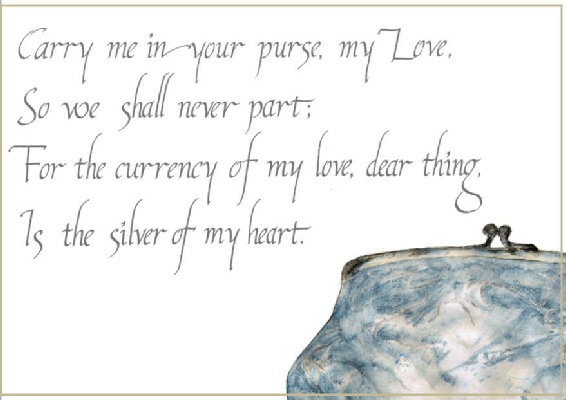 Carry me in your purse, my Love,
So we shall never part;
For the currency of my love, dear thing,
Is the silver of my heart.